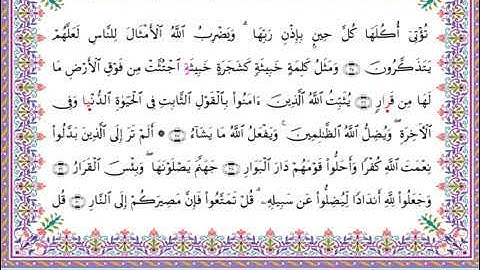 تُؤْتِىٓ أُكُلَهَا كُلَّ حِينٍۭ بِإِذْنِ رَبِّهَا ۗ وَيَضْرِبُ ٱللَّهُ ٱلْأَمْثَالَ لِلنَّاسِ لَعَلَّهُمْ
يَتَذَكَّرُونَ ۝ وَمَثَلُ كَلِمَةٍ خَبِيثَةٍ كَشَجَرَةٍ خَبِيثَةٍ ٱجْتُثَّتْ مِن فَوْقِ ٱلْأَرْضِ مَا
لَهَا مِن قَرَارٍ ۝ يُثَبِّتُ ٱللَّهُ ٱلَّذِينَ ءَامَنُوا۟ بِٱلْقَوْلِ ٱلثَّابِتِ فِى ٱلْحَيَوٰةِ ٱلدُّنْيَا وَفِى
ٱلْـَٔاخِرَةِ ۖ وَيُضِلُّ ٱللَّهُ ٱلظَّـٰلِمِينَ ۚ وَيَفْعَلُ ٱللَّهُ مَا يَشَآءُ ۝ ۞ أَلَمْ تَرَ إِلَى ٱلَّذِينَ بَدَّلُوا۟
نِعْمَتَ ٱللَّهِ كُفْرًا وَأَحَلُّوا۟ قَوْمَهُمْ دَارَ ٱلْبَوَارِ ۝ جَهَنَّمَ يَصْلَوْنَهَا ۖ وَبِئْسَ ٱلْقَرَارُ ۝
وَجَعَلُوا۟ لِلَّهِ أَندَادًا لِّيُضِلُّوا۟ عَن سَبِيلِهِۦ ۗ قُلْ تَمَتَّعُوا۟ فَإِنَّ مَصِيرَكُمْ إِلَى ٱلنَّارِ ۝ قُل